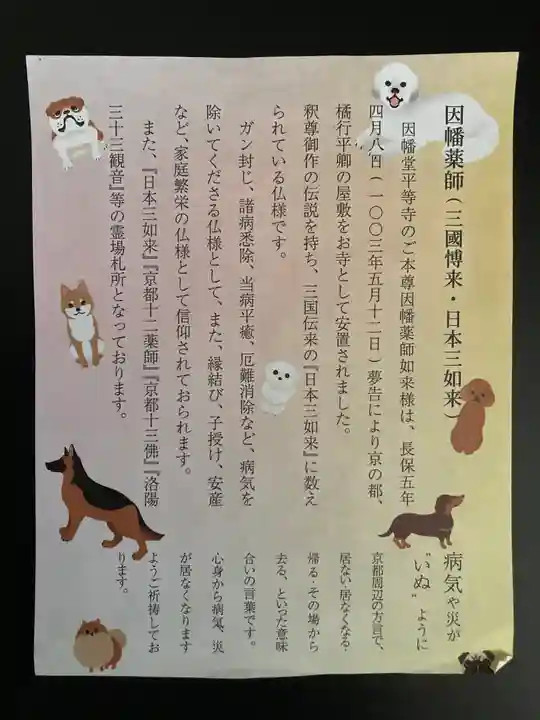 因幡薬師（三國愽来・日本三如来）
因幡堂平等寺のご本尊因幡薬師如来様は、長保五年
四月八日（一〇〇三年五月十二日）夢告により京の都、
橘行平卿の屋敷をお寺として安置されました。
釈尊御作の伝説を持ち、三国伝来の『日本三如来』に数え
られている仏様です。
ガン封じ、諸病悉除、当病平癒、厄難消除など、病気を
除いてくださる仏様として、また、縁結び、子授け、安産
など、家庭繁栄の仏様として信仰されておられます。
また、『日本三如来』『京都十二薬師』『京都十三佛』『洛陽
三十三観音』等の霊場札所となっております。
病気や災が
“いぬ”ように
京都周辺の方言で、
居ない・居なくなる・
帰る・その場から
去る、といった意味
合いの言葉です。
心身から病気、災
が居なくなります
ようご祈祷してお
ります。